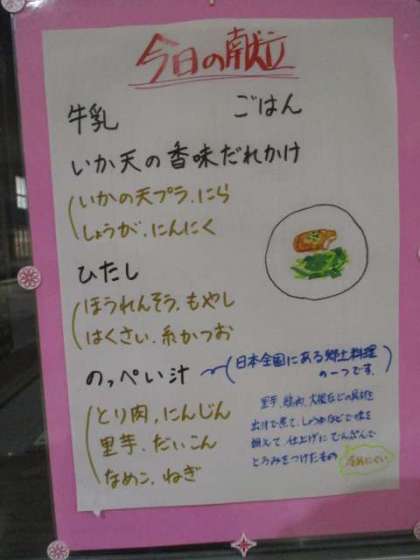 今日の献立
牛乳 ごはん
いか天の香味だれかけ
いかの天プラ、にら
しょうが、にんにく
ひたし
ほうれんそう、もやし
はくさい、糸かつお
のっぺい汁
とり肉、にんじん
里芋、だいこん
なめこ、ねぎ
日本全国にある郷土料理
の一つです。
里芋、鶏肉、大根などの具材を
出汁で煮て、しょうゆなどで味を
調えて、仕上げにでんぷんで
とろみをつけたもの
冷めにくい